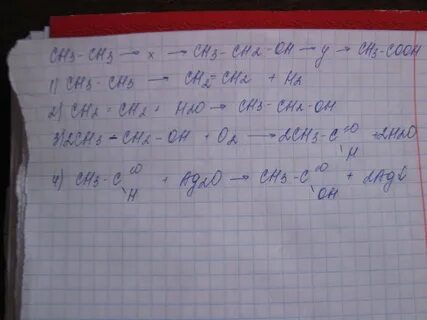 CH3-CH3 → x → CH3-CH2-OH → y → CH3-COOH
1) CH3-CH3 → CH2=CH2 + H2
2) CH2=CH2 + H2O → CH3-CH2-OH
3) 2CH3-CH2-OH + O2 → 2CH3-C=O + 2H2O
H
4) CH3-C=O + Ag2O → CH3-C=O + 2Ag↓
H OH